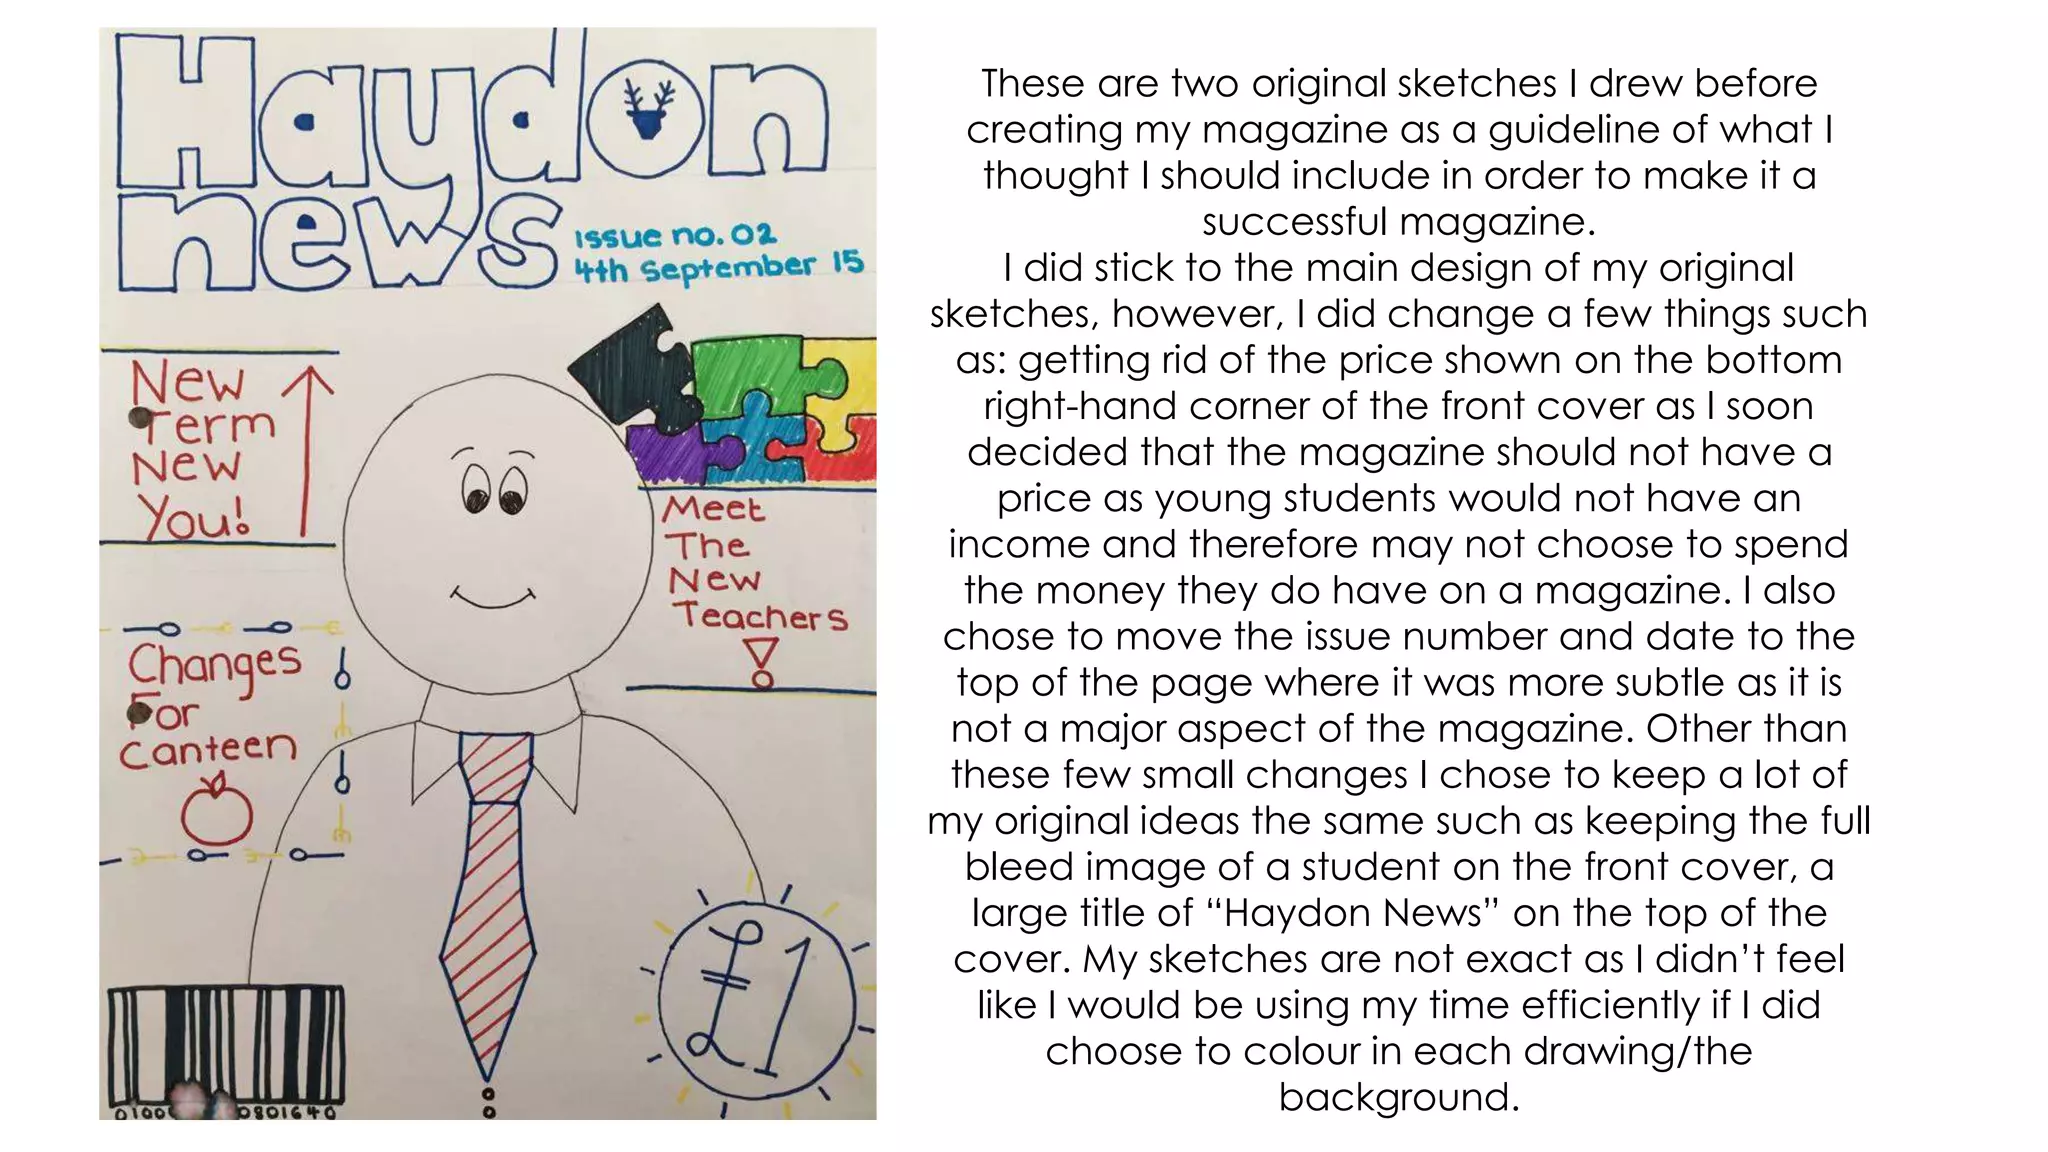 Haydon
news
issue no. 02
4th September 15
New
Term
New
You!
Meet
The
New
Teachers
!
Changes
For
Canteen
£1
0100 0801640
These are two original sketches I drew before
creating my magazine as a guideline of what I
thought I should include in order to make it a
successful magazine.
I did stick to the main design of my original
sketches, however, I did change a few things such
as: getting rid of the price shown on the bottom
right-hand corner of the front cover as I soon
decided that the magazine should not have a
price as young students would not have an
income and therefore may not choose to spend
the money they do have on a magazine. I also
chose to move the issue number and date to the
top of the page where it was more subtle as it is
not a major aspect of the magazine. Other than
these few small changes I chose to keep a lot of
my original ideas the same such as keeping the full
bleed image of a student on the front cover, a
large title of “Haydon News” on the top of the
cover. My sketches are not exact as I didn’t feel
like I would be using my time efficiently if I did
choose to colour in each drawing/the
background.